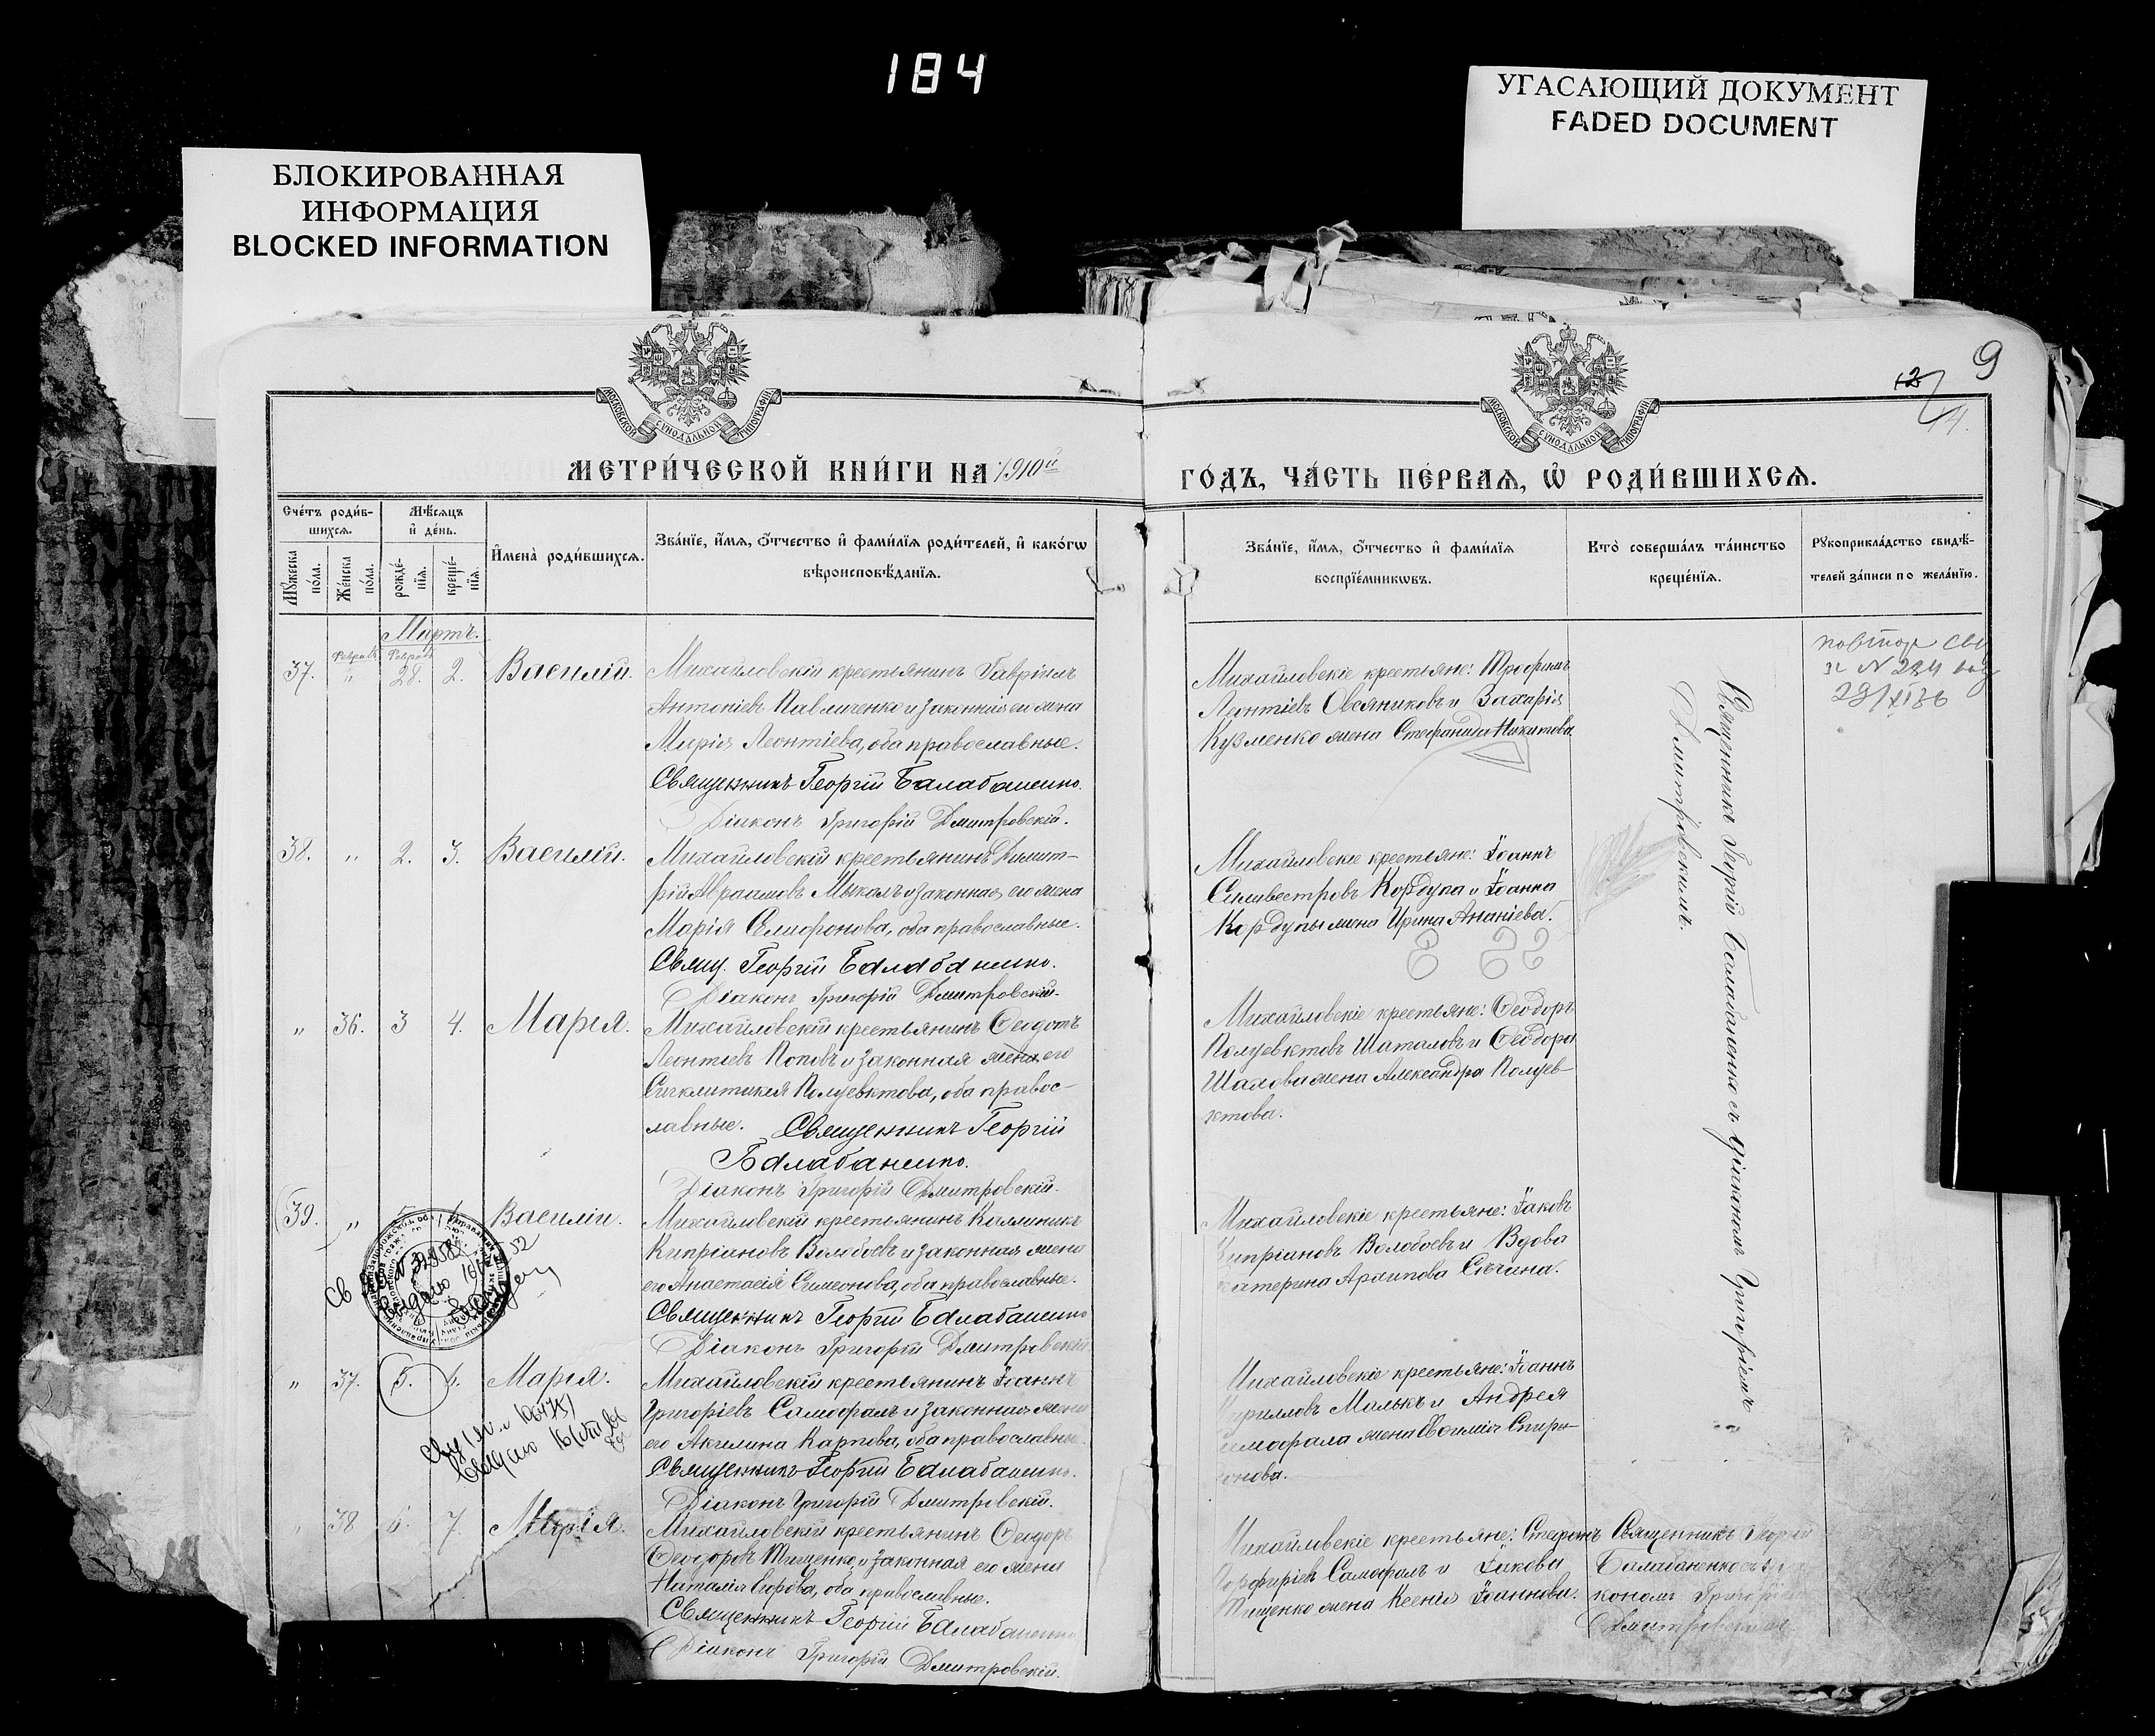 184
УГАСАЮЩИЙ ДОКУМЕНТ
FADED DOCUMENT
БЛОКИРОВАННАЯ
ИНФОРМАЦИЯ
BLOCKED INFORMATION
МОСКОВСКОЙ СѴНОДАЛЬНОЙ ТИПОГРАФІИ
МОСКОВСКОЙ СѴНОДАЛЬНОЙ ТИПОГРАФІИ
9
12
11.
МЕТРИ́ЧЕСКОЙ КНИ́ГИ НА 1910й
ГО́ДЪ, ЧА́СТЬ ПЕ́РВАѦ, Ѡ҆ РОДИ́ВШИХСѦ.
Сче́тъ роди́в-
шихсѧ.
Мꙋ́жеска по́ла.
Же́нска по́ла.
Мѣ́сѧцъ
и҆ де́нь.
рожде́-
нїѧ.
креще́-
нїѧ.
И҆мена̀ роди́вшихсѧ.
Зва́нїе, и҆́мѧ, ѻ҆́тчество и҆ фами́лїѧ роди́телей, и҆ како́гѡ
вѣроисповѣ́данїѧ.
Зва́нїе, и҆́мѧ, ѻ҆́тчество и҆ фами́лїѧ
воспрїе́мникѡвъ.
Кто̀ соверша́лъ та́инство
креще́нїѧ.
Рꙋкоприкла́дство свидѣ́-
телей за́писи по жела́нїю.
Мартъ.
37. " 28. 2. Василій.
Михайловскій крестьянинъ Гавріилъ
Антоніевъ Павличенко и законная его жена
Марія Леонтіева, оба православные.
Священникъ Георгій Балабаненко.
Діаконъ Григорій Дмитровскій.
Михайловскіе крестьяне: Трофимъ
Леонтіевъ Овсяниковъ и Захарія
Кузменко жена Стефанида Никитова
Священникъ Георгій Балабаненко съ діакономъ Григоріемъ
Дмитровскимъ.
повтор св
29/XI36
38. " 2. 3. Василій.
Михайловскій крестьянинъ Димит-
рій Авраамовъ и законная его жена
Марія, оба православные.
Свящ. Георгій Балабаненко.
Діаконъ Григорій Дмитровскій.
Михайловскіе крестьяне: Іоаннъ
Силивестровъ Кордупа и Іоанна
Кордупы жена Ирина Ананіева.
" 36. 3 4. Марія.
Михайловскій крестьянинъ Ѳеодотъ
Леонтіевъ Поповъ и законная жена его
Сигклитикія Полуевктова, оба правос-
лавные. Священникъ Георгій
Балабаненко.
Діаконъ Григорій Дмитровскій.
Михайловскіе крестьяне: Ѳеодоръ
Полуевктовъ Шаталовъ и Ѳеодора
жена Александра Полуев-
ктова.
39. " Василій.
Михайловскій крестьянинъ Каллиникъ
Кипріановъ Волобоевъ и законная жена
его Анастасія Симеонова, оба православные.
Священникъ Георгій Балабаненко
Діаконъ Григорій Дмитровскій
Михайловскіе крестьяне: Іаковъ
Кипріановъ Волобоевъ и Вдова
Екатерина Архипова
" 37. 5. 6. Марія.
Михайловскій крестьянинъ Іоаннъ
Григоріевъ Самофалъ и законная жена
его Акилина Карпова, оба православны
Священникъ Георгій Балабаненко.
Діаконъ Григорій Дмитровскій.
Михайловскіе крестьяне: Іоаннъ
Кирилловъ и Андрея
Самофала жена Евфимія Спири-
онова.
" 38 6. 7. Марія.
Михайловскій крестьянинъ Ѳеодоръ
Ѳеодоровъ Тищенко и законная его жена
Наталія Егорова, оба православные.
Священникъ Георгій Балабаненко
Діаконъ Григорій Дмитровскій.
Михайловскіе крестьяне: Стефанъ
Порфиріевъ Самофалъ и Іакова
Тищенко жена Ксенія Іоаннова.
Священникъ Георгій
Балабаненко съ діа
кономъ Григорі
Дмитровскимъ